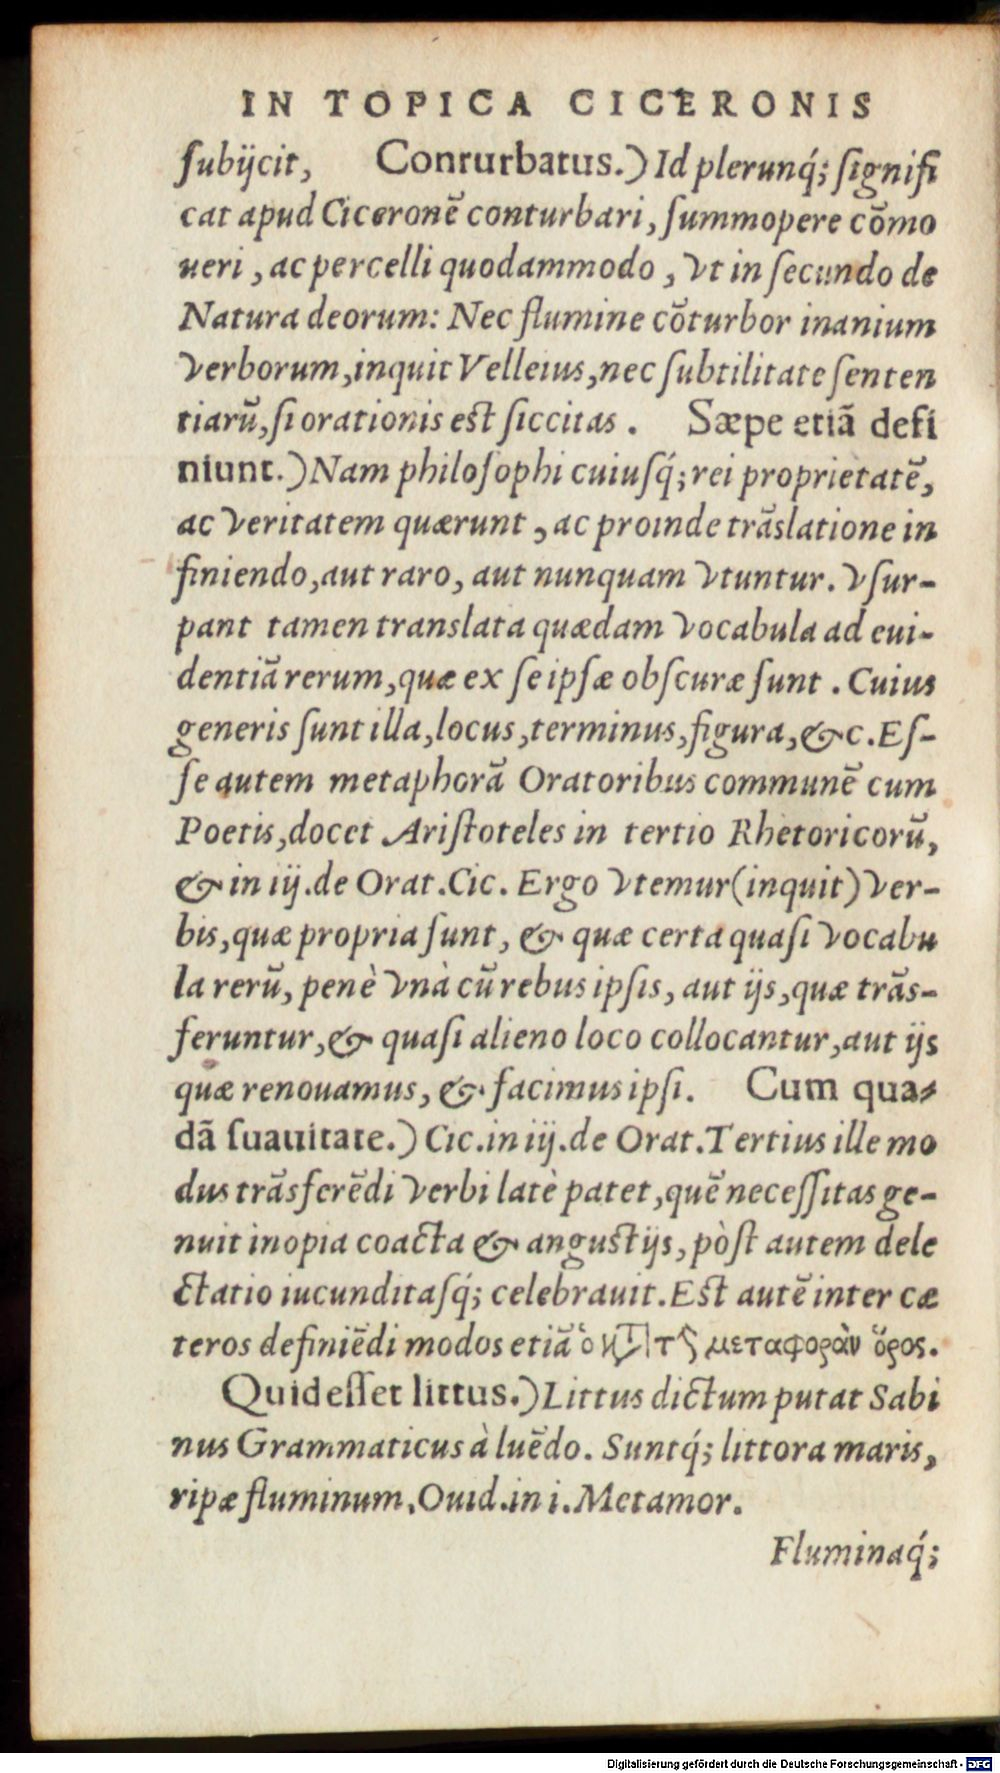 IN TOPICA CICERONIS
ſubijcit, Conturbatus.) Id plerunq́; ſignifi
cat apud Ciceronẽ conturbari, ſummopere cõmo
ueri, ac percelli quodammodo, vt in ſecundo de
Natura deorum: Nec flumine cõturbor inanium
verborum, inquit Velleius, nec ſubtilitate ſenten
tiarũ, ſi orationis est ſiccitas. Sæpe etiã defi
niunt.) Nam philoſophi cuiuſq́; rei proprietatẽ,
ac veritatem quærunt, ac proinde trãslatione in
finiendo, aut raro, aut nunquam vtuntur. vſur-
pant tamen translata quædam vocabula ad eui-
dentiã rerum, quæ ex ſe ipſæ obſcuræ ſunt. Cuius
generis ſunt illa, locus, terminus, figura, &c. Eſ-
ſe autem metaphorã Oratoribus communẽ cum
Poetis, docet Ariſtoteles in tertio Rhetoricorũ,
& in iij. de Orat. Cic. Ergo vtemur (inquit) ver-
bis, quæ propria ſunt, & quæ certa quaſi vocabu
la rerũ, penè vnà cũ rebus ipſis, aut ijs, quæ trãs-
feruntur, & quaſi alieno loco collocantur, aut ijs
quæ renouamus, & facimus ipſi. Cum qua-
dã ſuauitate.) Cic. in iij. de Orat. Tertius ille mo
dus trãsferẽdi verbi latè patet, quẽ neceſſitas ge-
nuit inopia coacta & angustijs, pòſt autem dele
ctatio iucunditaſq́; celebrauit. Est autẽ inter cæ
teros definiẽdi modos etiã ὁ μεταφορὰν ὅρος.
Quid eſſet littus.) Littus dictum putat Sabi
nus Grammaticus à luẽdo. Suntq́; littora maris,
ripæ fluminum. Ouid. in i. Metamor.
Fluminaq́;
Digitalisierung gefördert durch die Deutsche Forschungsgemeinschaft - DFG